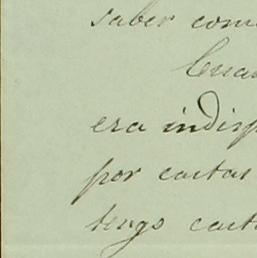 saber com
Cuan
era indisp
por cartas
tengo cart